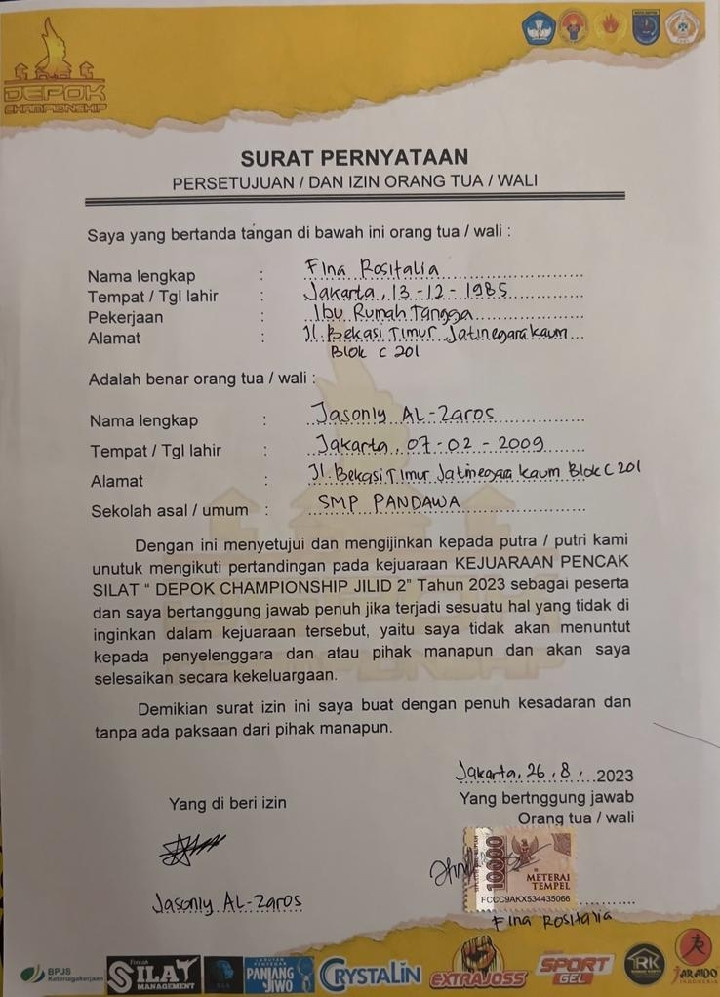 DEPOK
CHAMPIONSHIP
SURAT PERNYATAAN
PERSETUJUAN / DAN IZIN ORANG TUA / WALI
Saya yang bertanda tangan di bawah ini orang tua / wali :
Nama lengkap : Fina Rositalia
Tempat / Tgl lahir : Jakarta, 13 - 12 - 1985
Pekerjaan : Ibu Rumah Tangga
Alamat : Jl. Bekasi Timur Jatinegara kaum
Blok C 201
Adalah benar orang tua / wali :
Nama lengkap : Jasonly AL-Zaros
Tempat / Tgl lahir : Jakarta, 07 - 02 - 2009
Alamat : Jl. Bekasi Timur Jatinegara kaum Blok C 201
Sekolah asal / umum : SMP PANDAWA
Dengan ini menyetujui dan mengijinkan kepada putra / putri kami
unutuk mengikuti pertandingan pada kejuaraan KEJUARAAN PENCAK
SILAT “ DEPOK CHAMPIONSHIP JILID 2” Tahun 2023 sebagai peserta
dan saya bertanggung jawab penuh jika terjadi sesuatu hal yang tidak di
inginkan dalam kejuaraan tersebut, yaitu saya tidak akan menuntut
kepada penyelenggara dan atau pihak manapun dan akan saya
selesaikan secara kekeluargaan.
Demikian surat izin ini saya buat dengan penuh kesadaran dan
tanpa ada paksaan dari pihak manapun.
Jakarta, 26 . 8 . 2023
Yang di beri izin
Yang bertnggung jawab
Orang tua / wali
10000
METERAI
TEMPEL
Jasonly AL-Zaros
Fina Rositalia
BPJS
Ketenagakerjaan
SILAT
MANAGEMENT
PANJANG
JIWO
CRYSTALIN
EXTRAJOSS
SPORT
GEL
RK